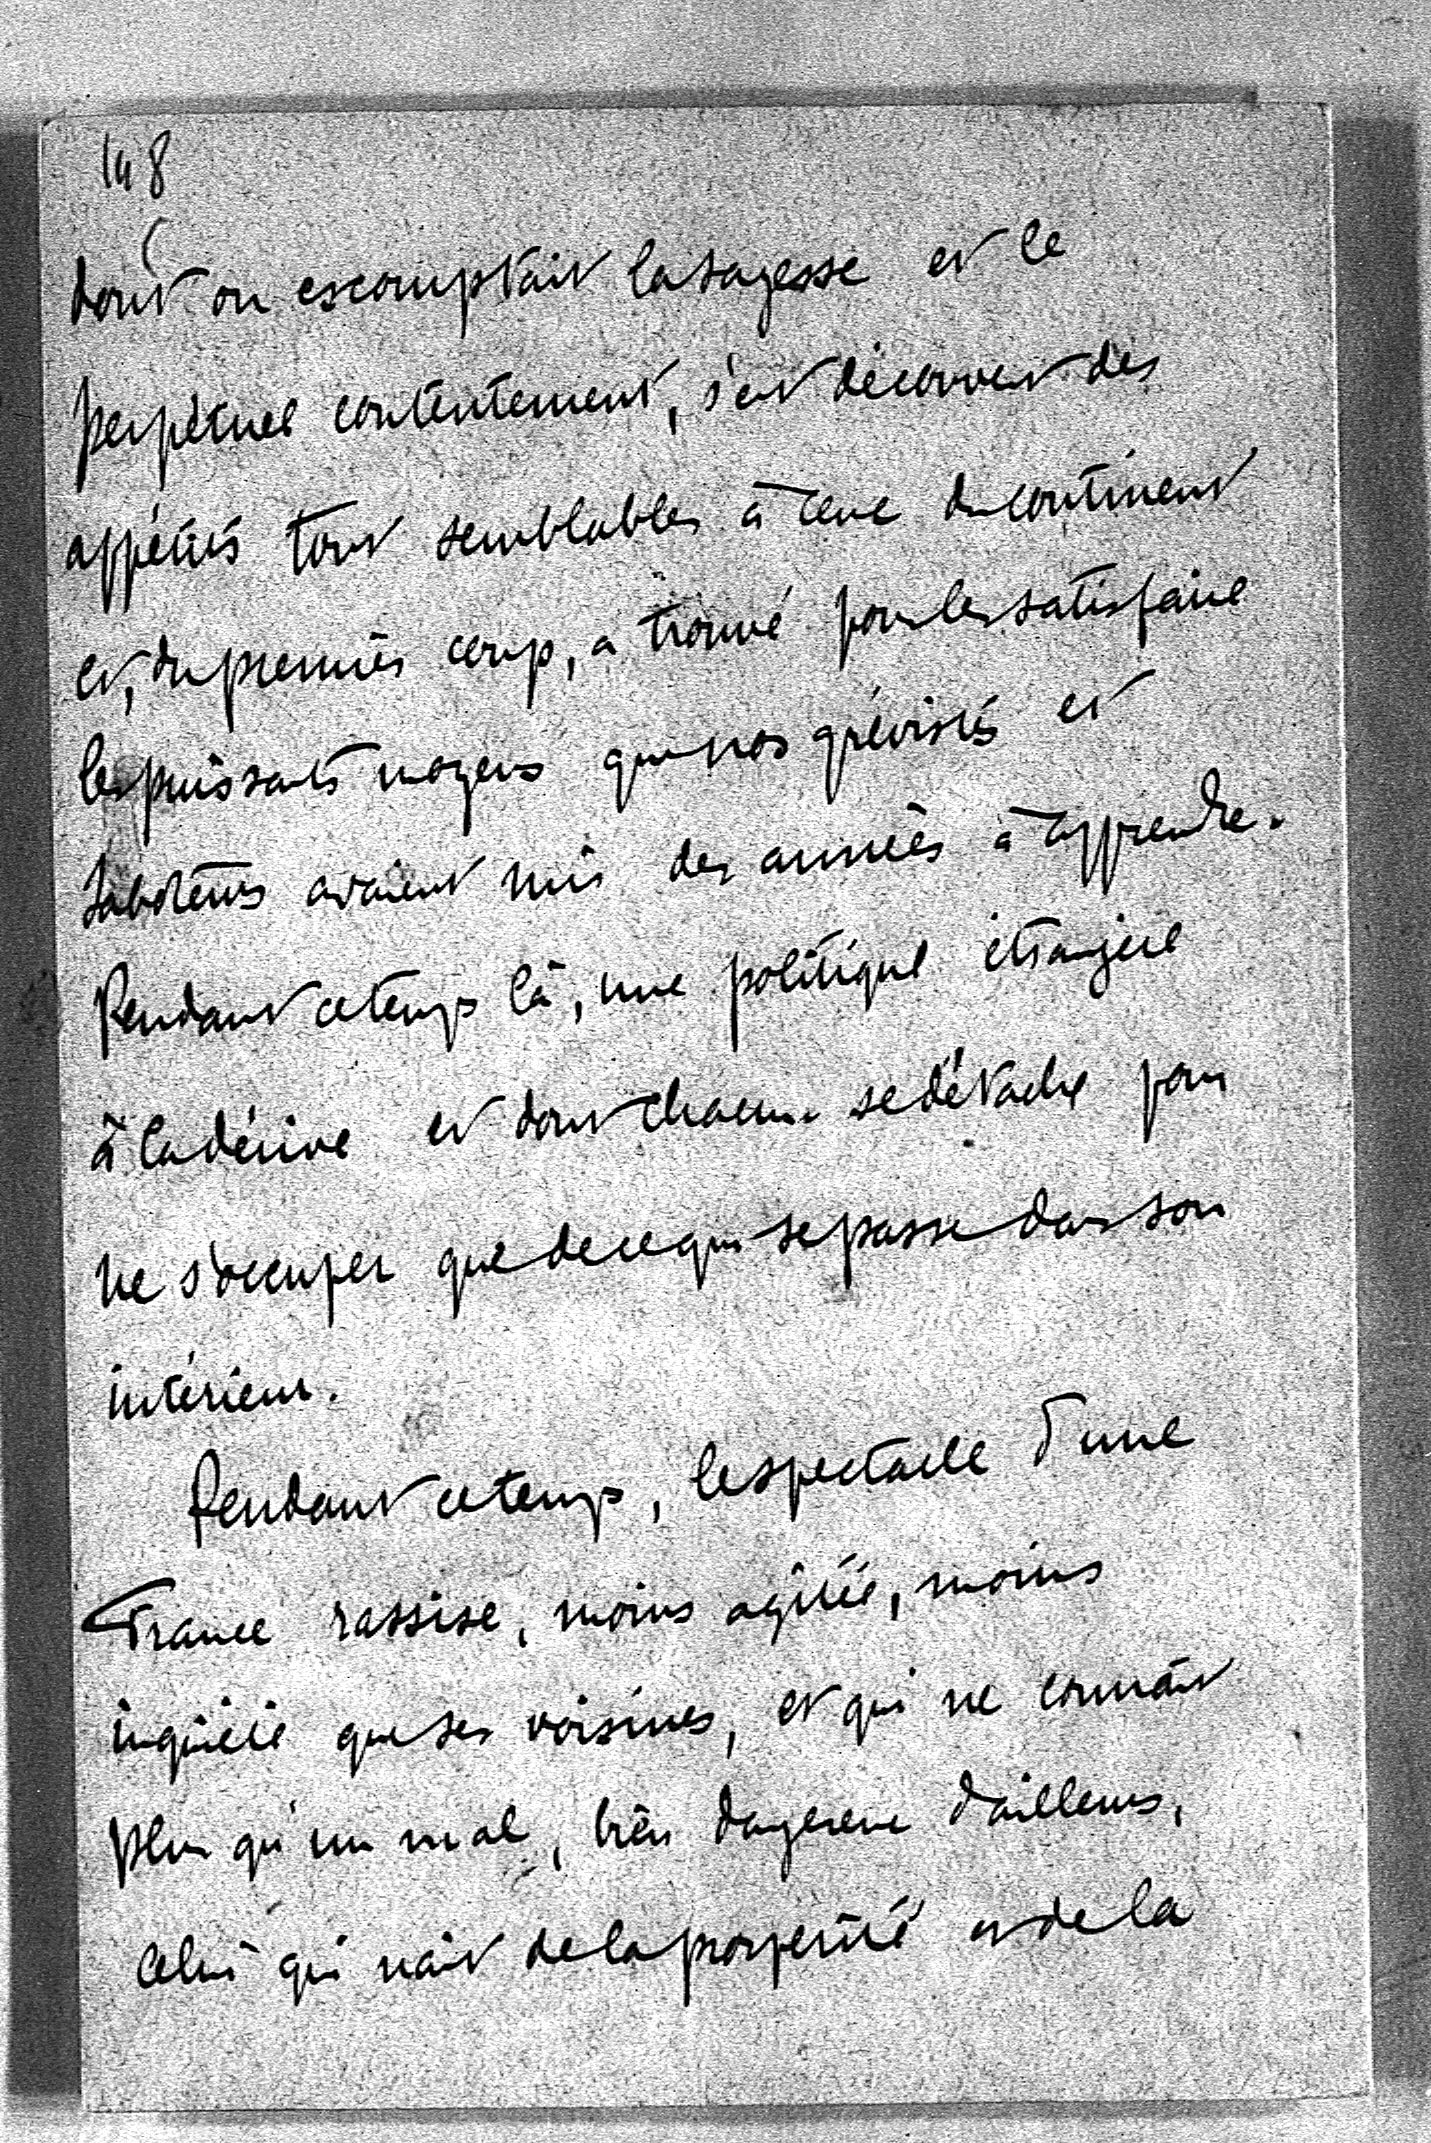 148
dont on escomptait la sagesse et le
perpétuel contentement, s'est découvert des
appétits tout semblables à ceux du continent
et, du premier coup, a trouvé pour les satisfaire
les puissants moyens que nos grévistes et
saboteurs avaient mis des années à apprendre.
Pendant ce temps là, une politique étrangère
à la dérive et dont chacun se détache pour
ne s'occuper que de ce qui se passe dans son
intérieur.
Pendant ce temps, le spectacle d'une
France rassise, moins agitée, moins
inquiète que ses voisines, et qui ne connaît
plus qu'un mal, très dangereux d'ailleurs,
celui qui naît de la prospérité et de la